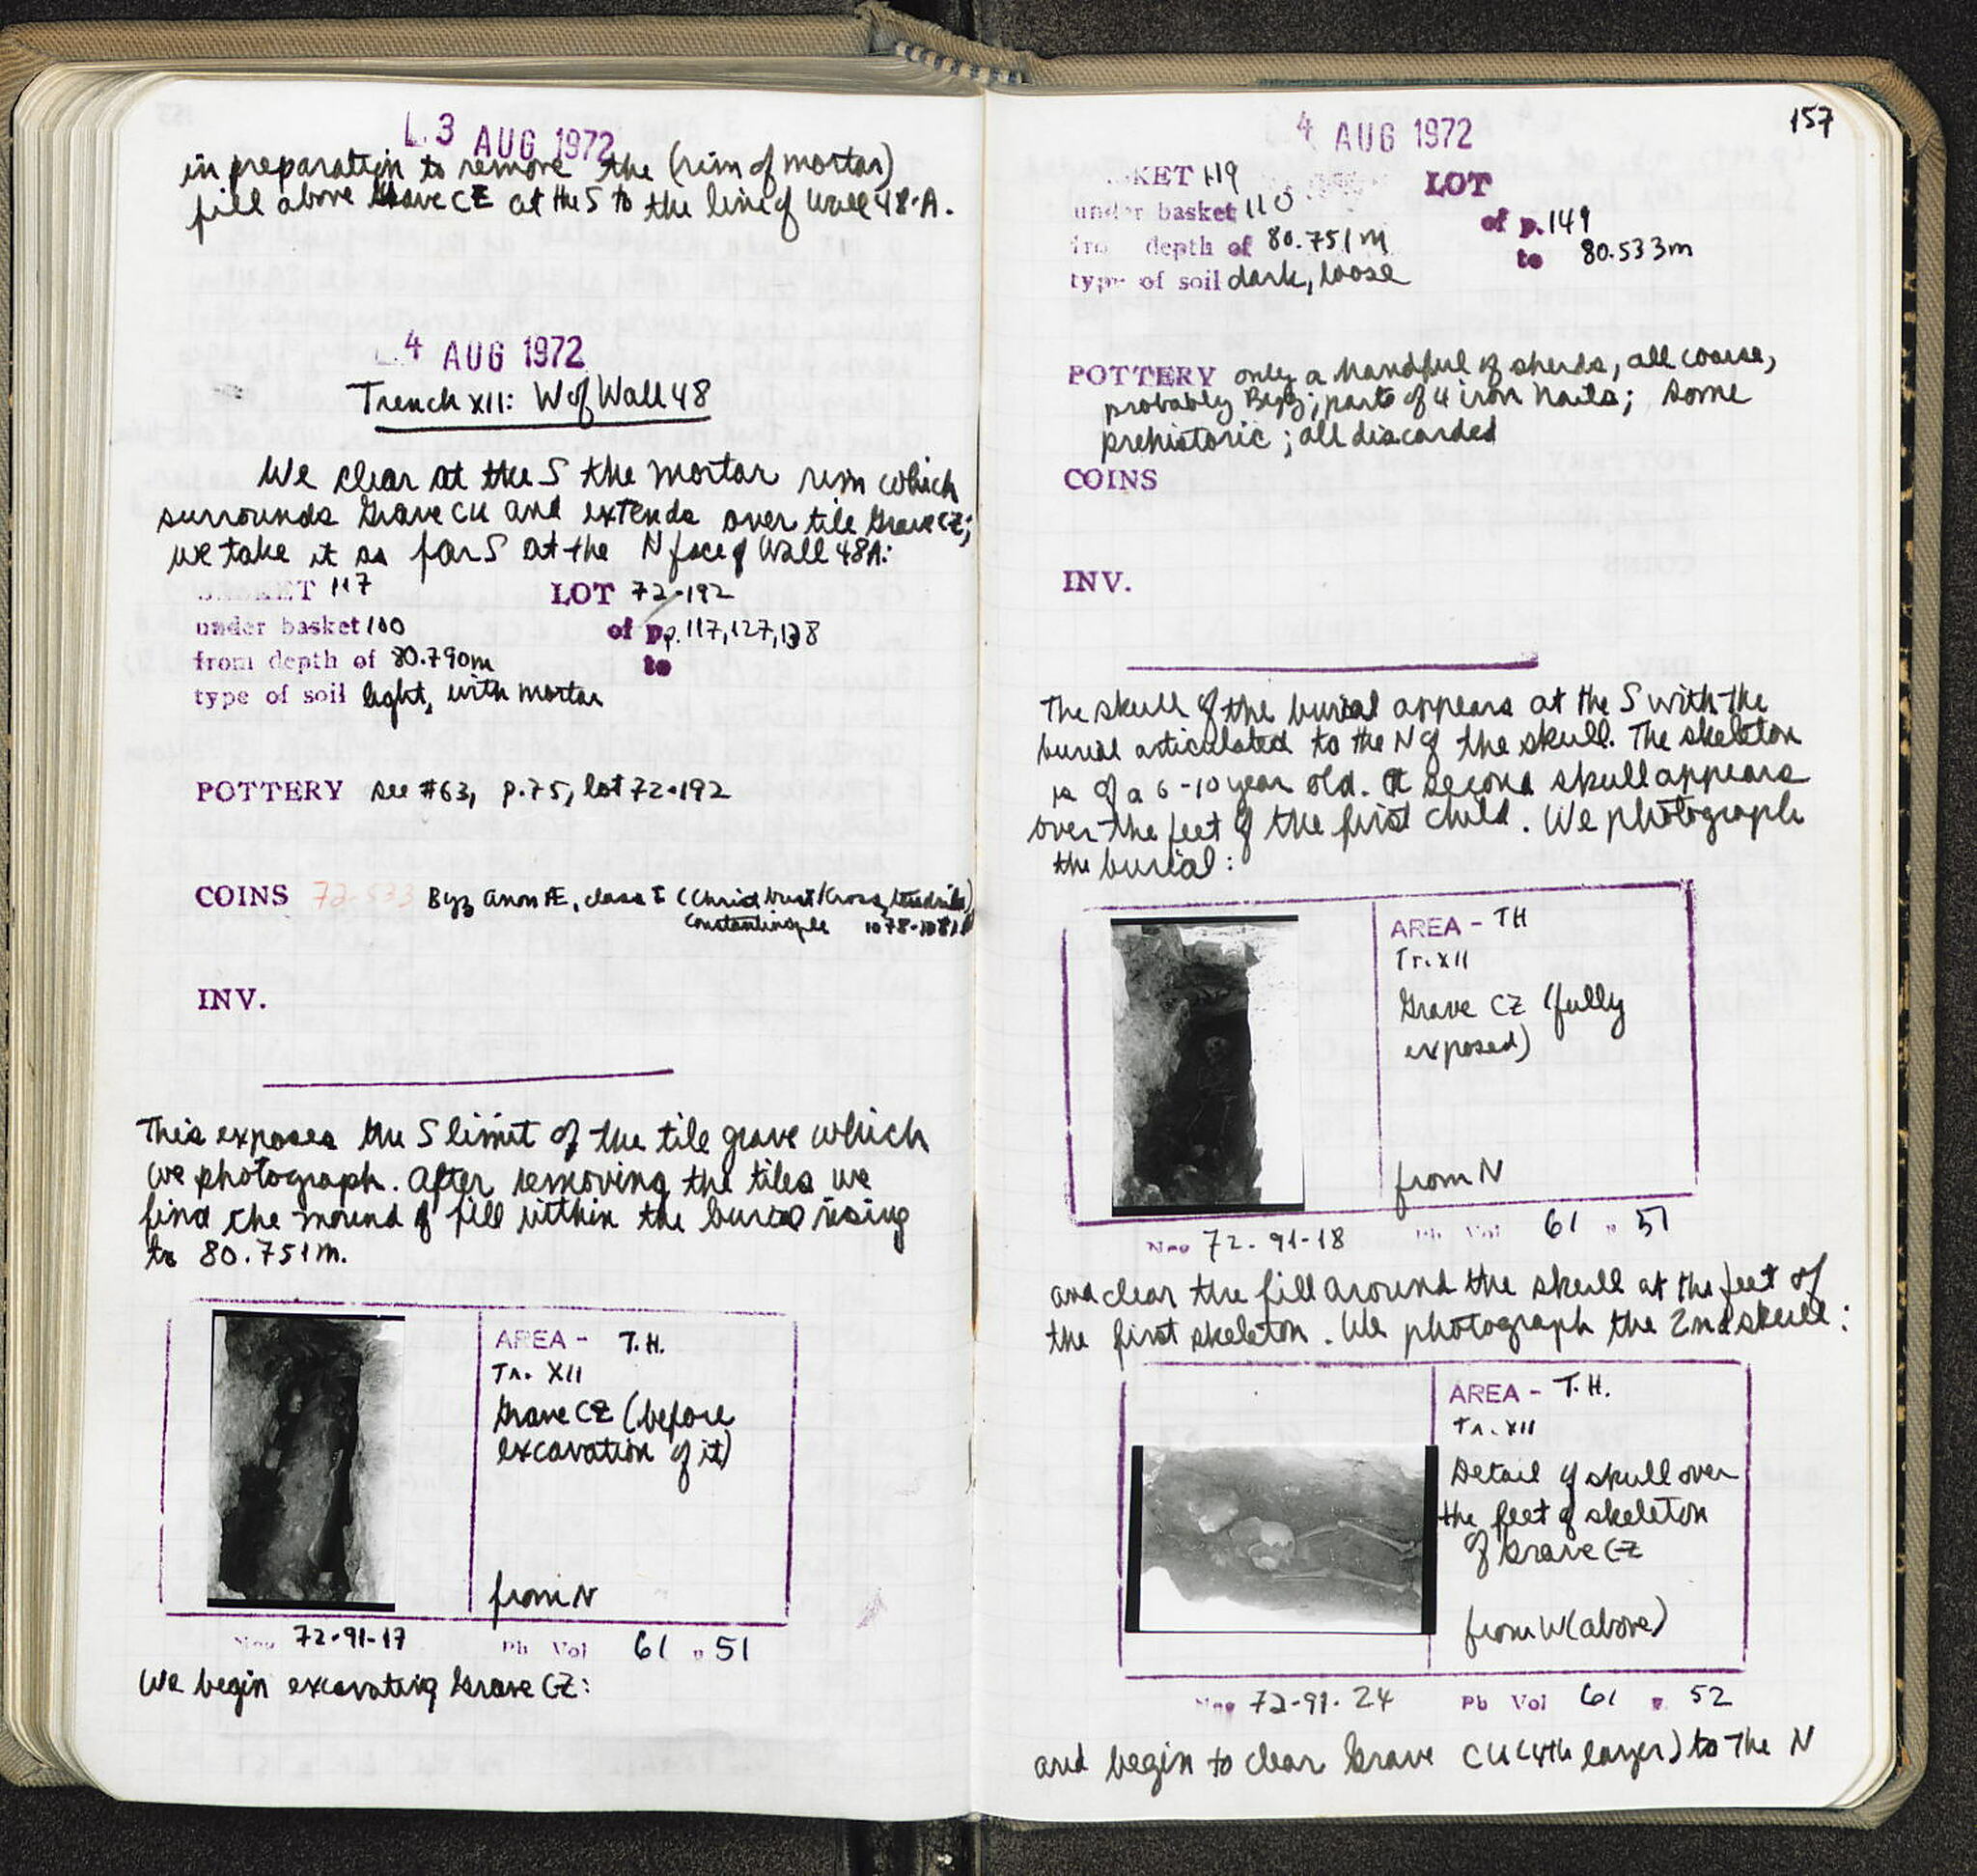 L 3 AUG 1972
in preparation to remove the (rim of mortar)
fill above Grave CZ at the S to the line of Wall 48-A.
4 AUG 1972
Trench XII: W of Wall 48
We clear at the S the mortar rim which
surrounds Grave CU and extends over tile Grave CZ;
we take it as far S at the N face of Wall 48A:
KET 117 LOT 72-192
under basket 100 of pp. 117, 127, 138
from depth of 80.790m to
type of soil light, with mortar
POTTERY see #63, p.75, lot 72-192
COINS 72-533 Byz anon Æ, class I (Christ bust/Cross, tendrils)
Constantinople 1078-1081
INV.
This exposes the S limit of the tile grave which
we photograph. After removing the tiles we
find the mound of fill within the burial rising
to 80.751m.
AREA - T.H.
Tr. XII
Grave CZ (before
excavation of it)
from N
Neg 72-91-17 Ph Vol 61 p 51
We begin excavating Grave CZ:
157
4 AUG 1972
SKET 119 LOT
under basket 110 of p. 149
fro depth of 80.751m to 80.533m
type of soil dark, loose
POTTERY only a handful of sherds, all coarse,
probably Byz; parts of 4 iron nails; some
prehistoric; all discarded
COINS
INV.
The skull of the burial appears at the S with the
burial articulated to the N of the skull. The skeleton
is of a 6-10 year old. A second skull appears
over the feet of the first child. We photograph
the burial:
AREA - TH
Tr. XII
Grave CZ (fully
exposed)
from N
Neg 72-91-18 Ph Vol 61 p 51
and clear the fill around the skull at the feet of
the first skeleton. We photograph the 2nd skull:
AREA - T.H.
Tr. XII
Detail of skull over
the feet of skeleton
of Grave CZ
from W (above)
Neg 72-91-24 Ph Vol 61 p 52
and begin to clear Grave CU (4th layer) to the N